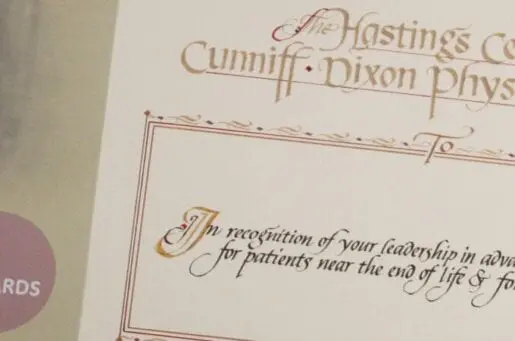 The Hastings Ce
Cunniff · Dixon Phys
To
In recognition of your leadership in adva
for patients near the end of life & fo
ARDS